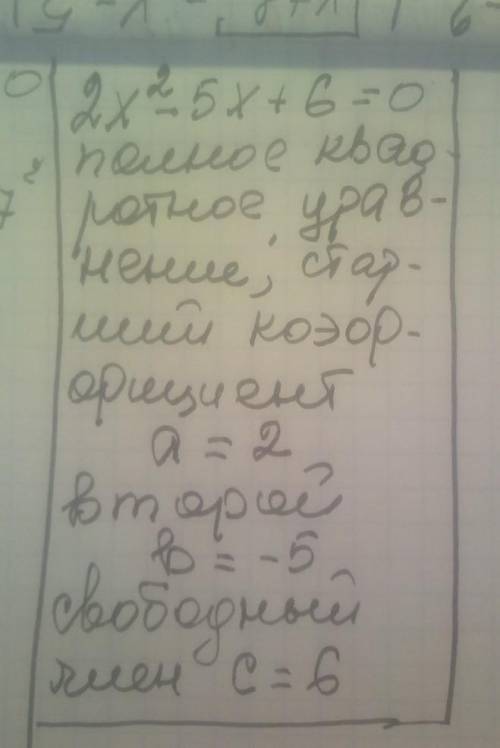 2x²-5x+6=0
полное квад-
ратное урав-
нение, стар-
ший коэф-
фициент
a = 2
второй
b = -5
свободный
член c = 6